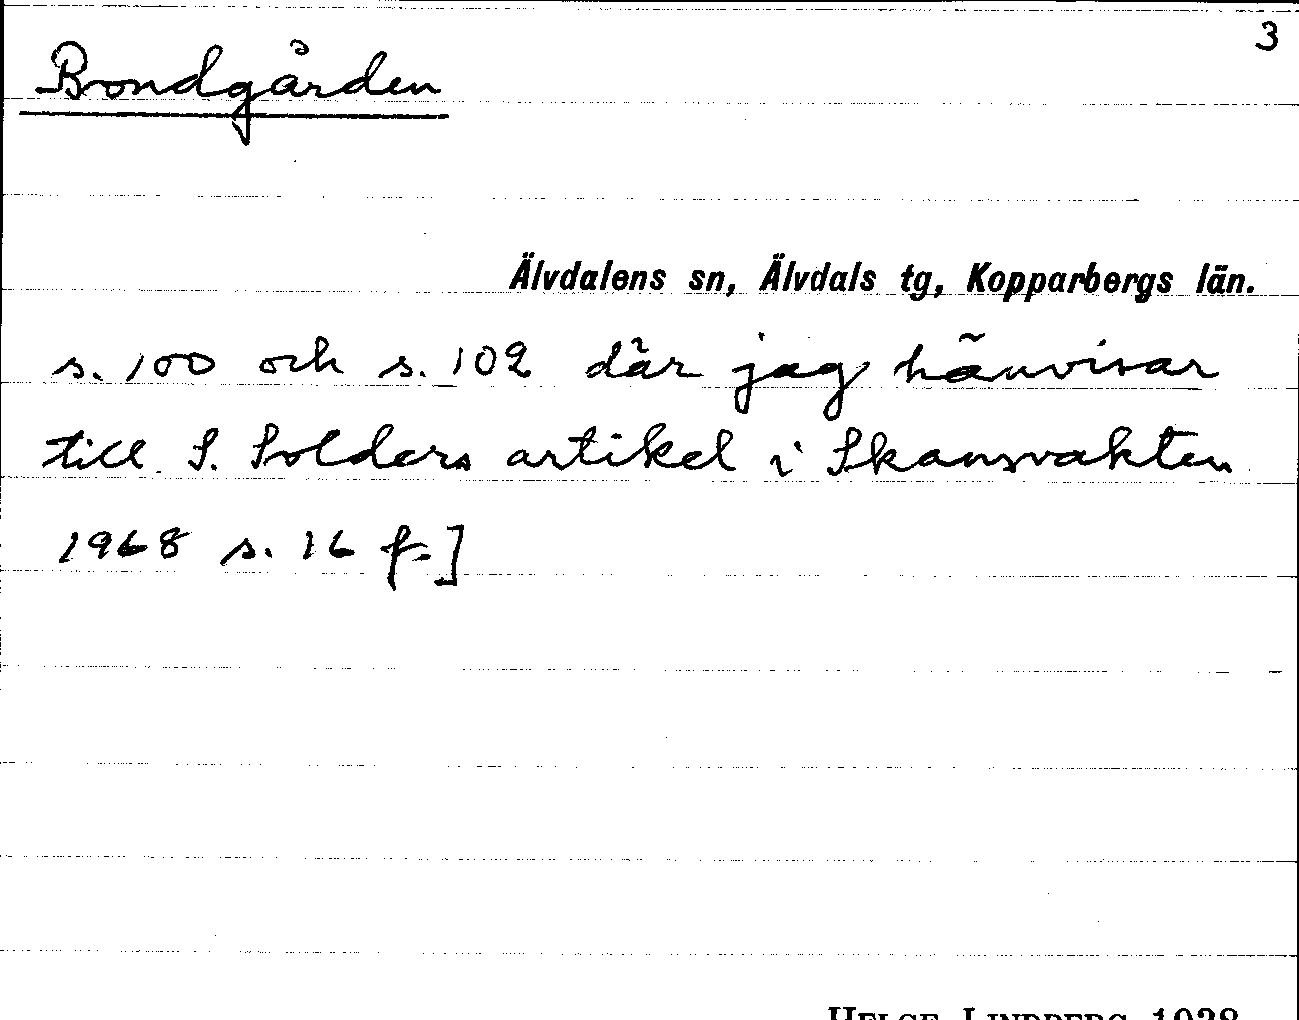 3
Brondgården
Älvdalens sn, Älvdals tg, Kopparbergs län.
s. 100 och s. 102 där jag hänvisar
till S. Solders artikel i Skansvakten
1968 s. 16 f.]
HELGE LINDBERG 1938